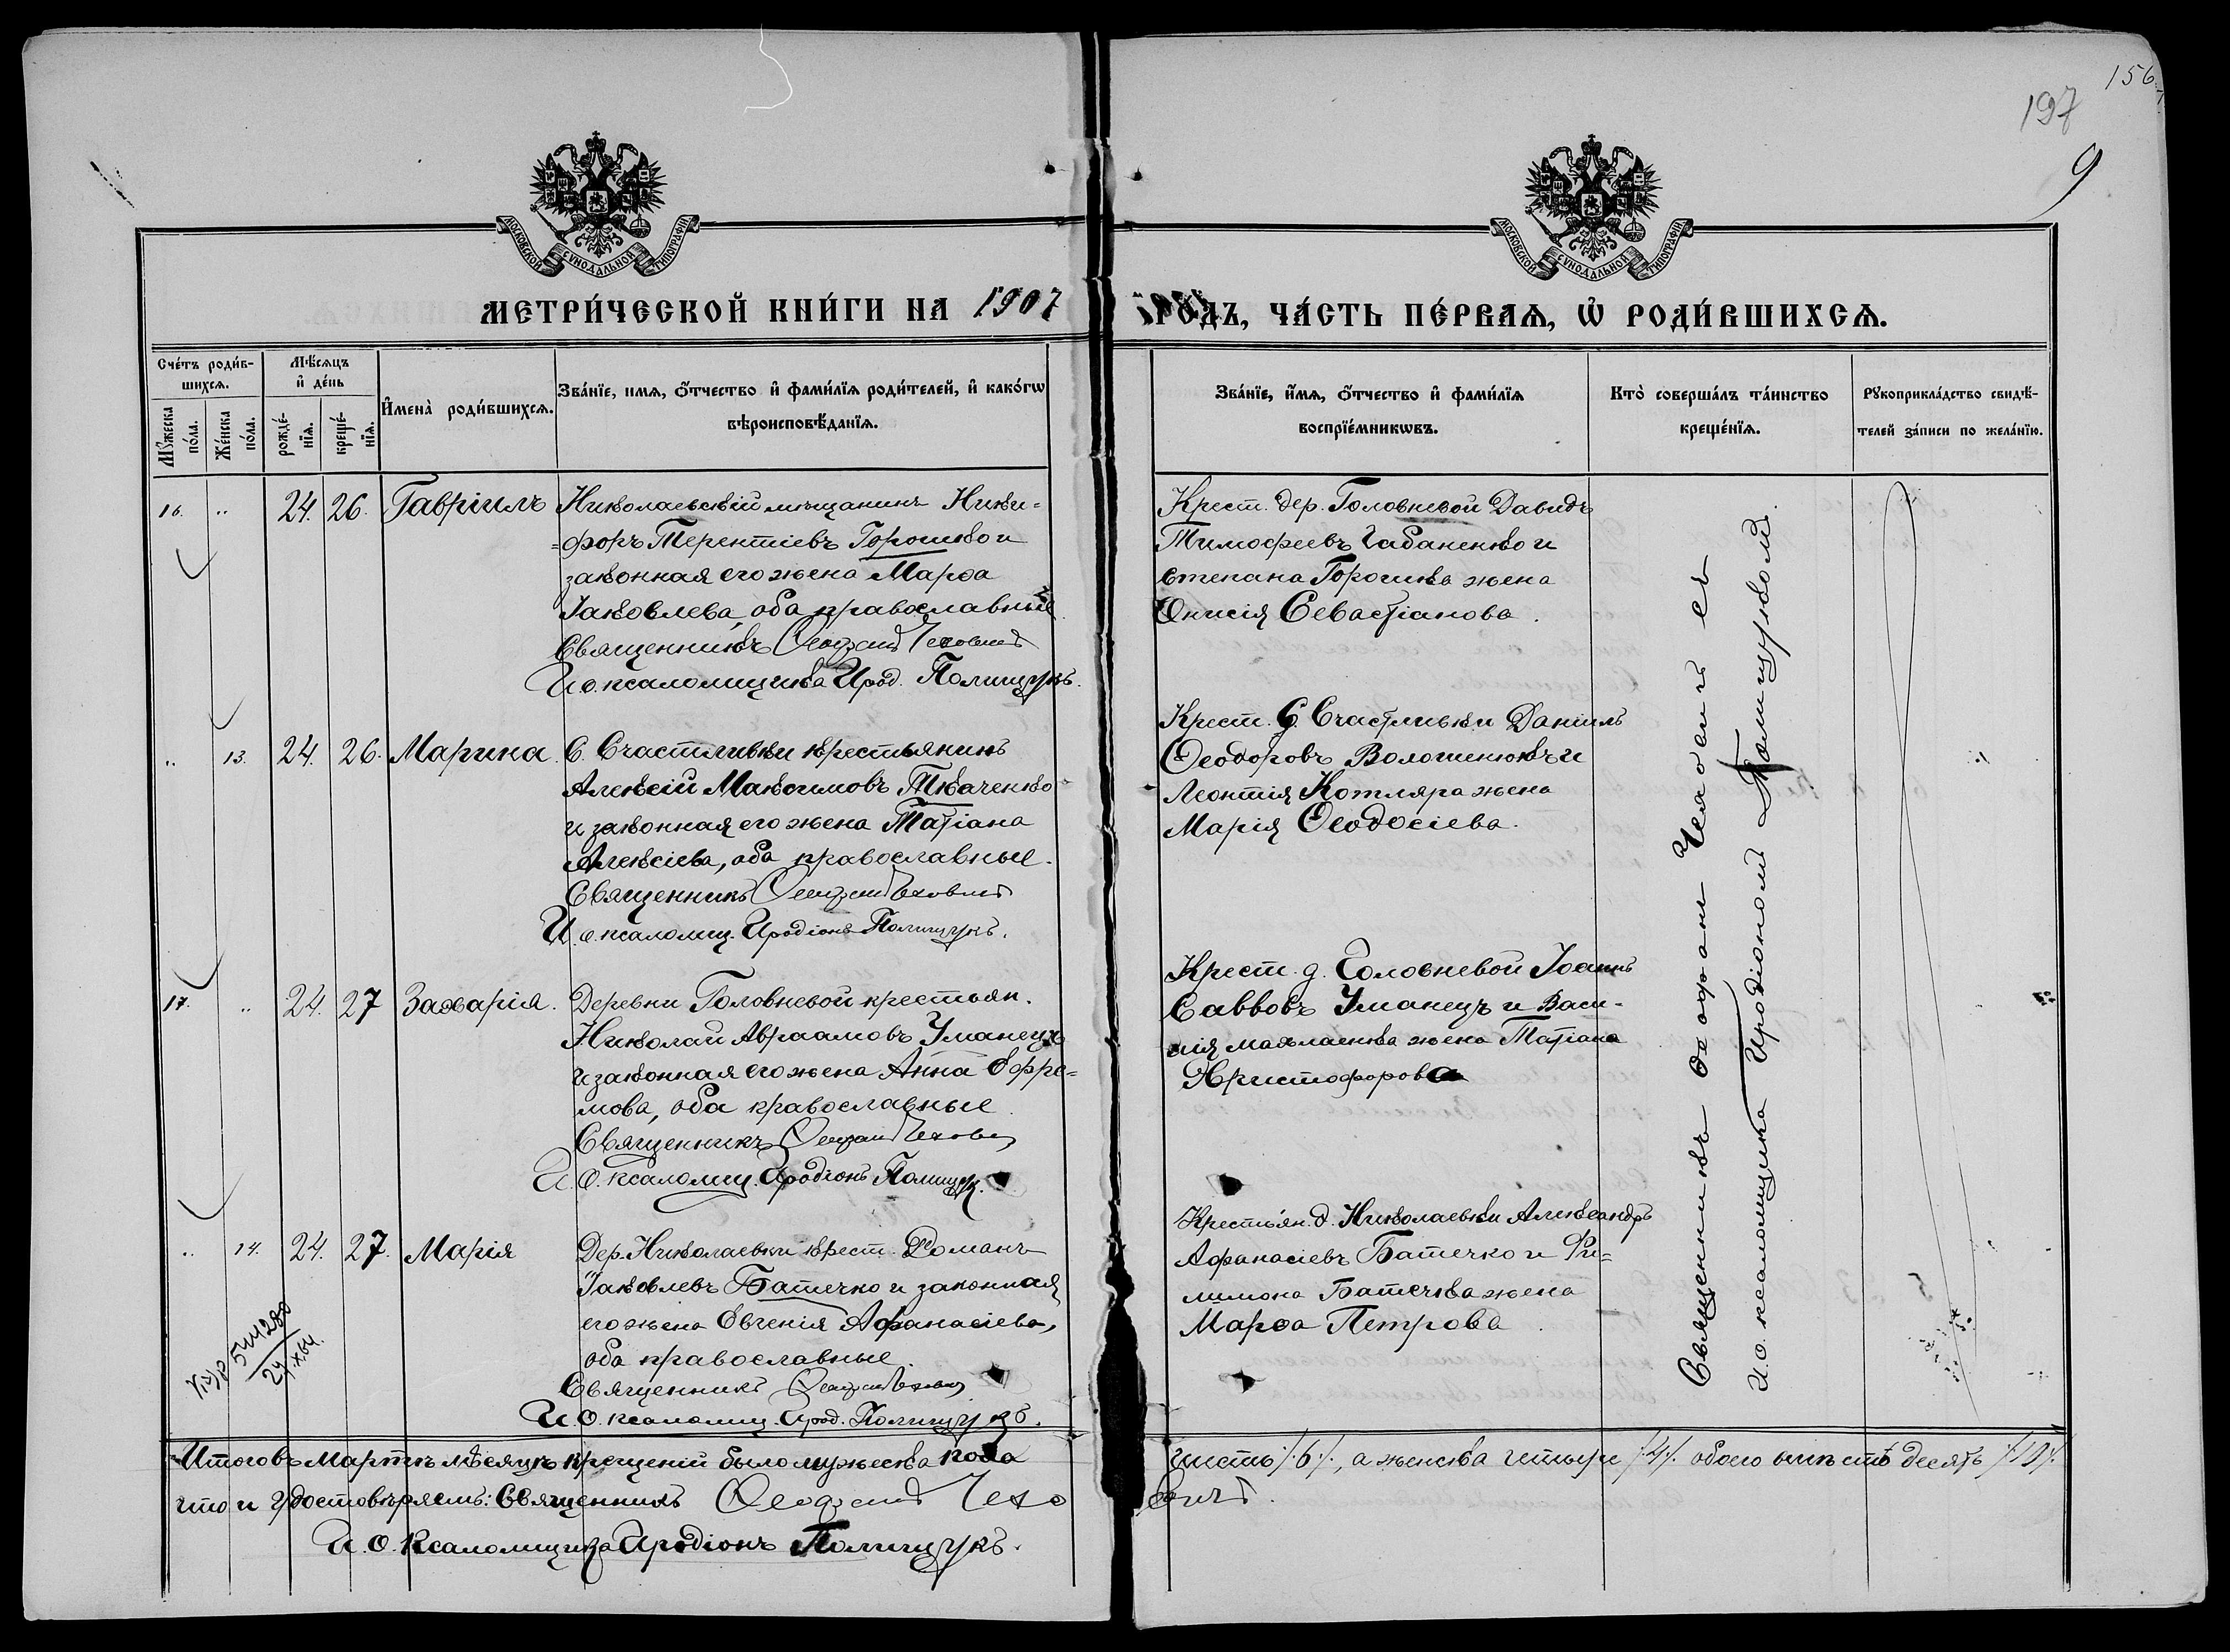 156
197
9
МОСКОВСКОЙ СѴНОДАЛЬНОЙ ТИПОГРАФІИ
МОСКОВСКОЙ СѴНОДАЛЬНОЙ ТИПОГРАФІИ
МЕТРИ́ЧЕСКОЙ КНИ́ГИ НА 1907
ГОДЪ, ЧА́СТЬ ПЕ́РВАѦ, Ѡ҆ РОДИ́ВШИХСѦ.
Сче́тъ роди́в-
шихсѧ.
Мꙋ́жеска по́ла.
Же́нска по́ла.
Мѣ́сѧцъ
и҆ де́нь
рожде́-
нїѧ.
креще́-
нїѧ.
И҆мена̀ роди́вшихсѧ.
Зва́нїе, имѧ, ѻ҆́тчество и҆ фами́лїѧ роди́телей, и҆ како́гѡ
вѣроисповѣ́данїѧ.
Зва́нїе, и҆́мѧ, ѻ҆́тчество и҆ фами́лїѧ
воспрїе́мникѡвъ.
Кто̀ соверша́лъ та́инство
креще́нїѧ.
Рꙋкоприкла́дство свидѣ́-
телей за́писи по жела́нїю.
16. „ 24. 26. Гавріилъ
Николаевскій мѣщанинъ Ники=
=форъ Терентіевъ Горошко и
законная его жена Марѳа
Іаковлева, оба православные
Священникъ
И. о. псаломщика Ирод. Полищукъ.
Крест. дер. Головневой Давидъ
Тимофеевъ Чабаненко и
Степана Горошка жена
Онисія Севастіанова.
„ 13. 24. 26. Марина
С. Счастливки крестьянинъ
Алексій Максимовъ Ткаченко
и законная его жена Татіана
Алексіева, оба православные.
Священникъ
И. о. псаломщ. Иродіонъ Полищукъ.
Крест. С. Счастливки Даніилъ
Ѳеодоровъ Волошенюкъ и
Леонтія Котляра жена
Марія Ѳеодосіева.
17. „ 24. 27 Захарія.
Деревни Головневой крестьян.
Николай Авраамовъ Уманецъ
и законная его жена Анна Ефре=
мова, оба православные.
Священникъ
И. О. псаломщ. Иродіонъ Полищук.
Крест. д. Головневой Іоаннъ
Саввовъ Уманецъ и Васи-
лія жена Татіана
Христофорова
„ 14. 24. 27. Марія
Дер. Николаевки крест. Романъ
Іаковлевъ Батечко и законная
его жена Евгенія Афанасіева,
оба православные.
Священникъ
И. О. псаломщ. Ирод. Полищукъ.
Крестьян. д. Николаевки Александръ
Афанасіевъ Батечко и Фи=
лимона Батечка жена
Марѳа Петрова.
Священникъ съ
и. о. псаломщика Иродіономъ Полищукомъ.
Итого въ Мартѣ мѣсяцѣ крещеній было мужеска пола
шесть /:6:/, а женска четыре /:4:/. обоего вмѣстѣ десять /:10:/.
что и удостовѣряемъ: Священникъ
И. О. Псаломщика Иродіонъ Полищукъ.